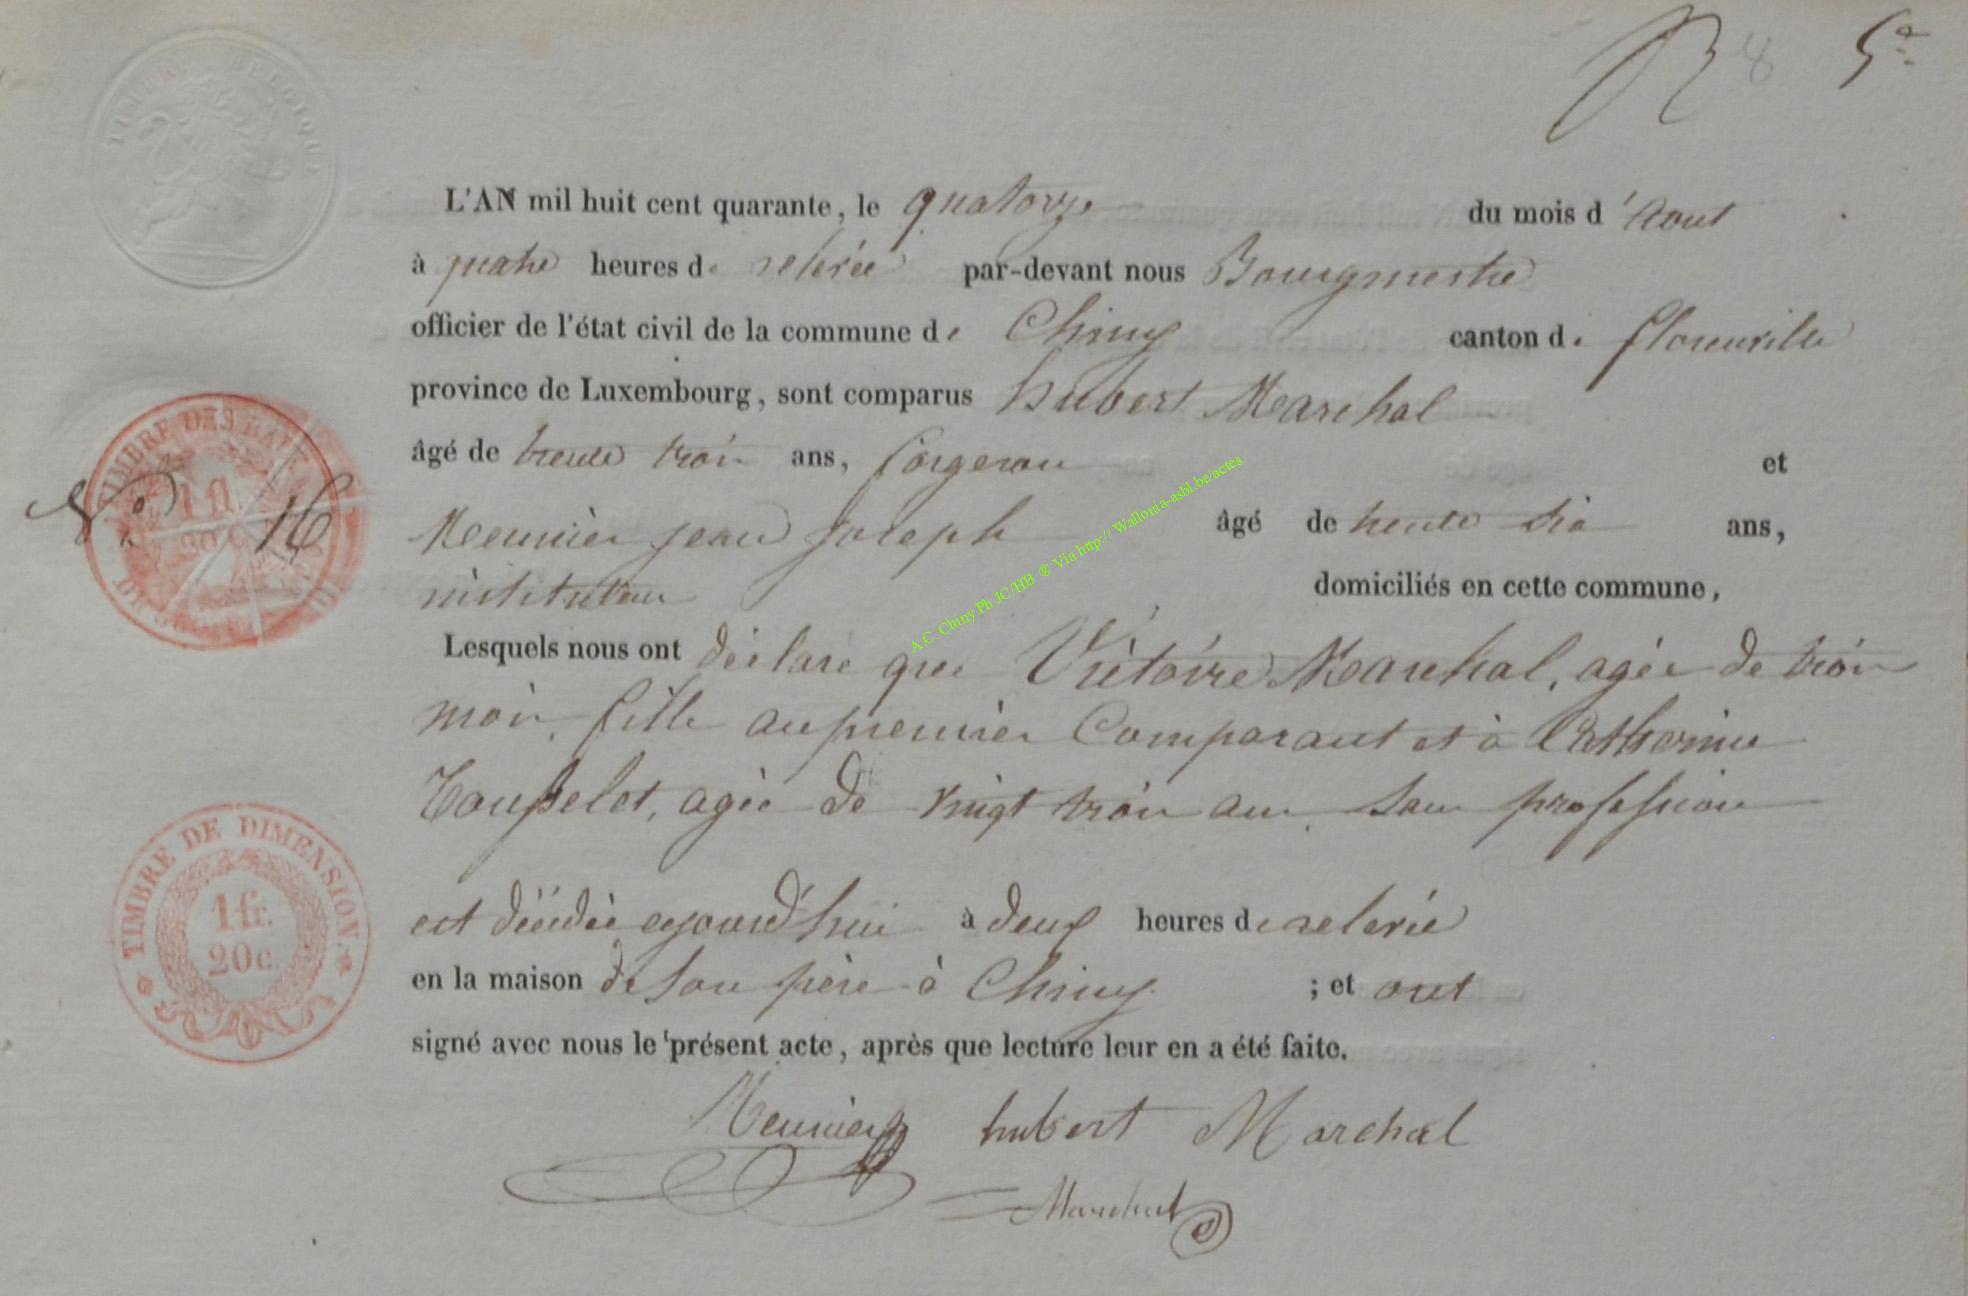 8 5
TIMBRE BELGIQUE
L'AN mil huit cent quarante, le quatorze du mois d'Aout
à quatre heures de relevée par-devant nous Bourgmestre
officier de l'état civil de la commune de Chiny canton de florenville
province de Luxembourg, sont comparus hubert Marchal
âgé de trente trois ans, forgeron et
Meunier jean joseph âgé de trente six ans,
instituteur domiciliés en cette commune,
N° 16
TIMBRE DES
Lesquels nous ont déclaré que Victoire Marchal, agée de trois
mois, fille au premier Comparant et à Catherine
Tousselot, agée de vingt trois ans, sans profession
est décédée aujourd'hui à deux heures de relevée
en la maison de son père à Chiny ; et ont
signé avec nous le présent acte, après que lecture leur en a été faite.
TIMBRE DE DIMENSION
1 fr.
20 c.
Meunier hubert Marchal
Marchal
A.C. Chiny Ph JC/HB ® Via http:// Wallonia-asbl.be/actes